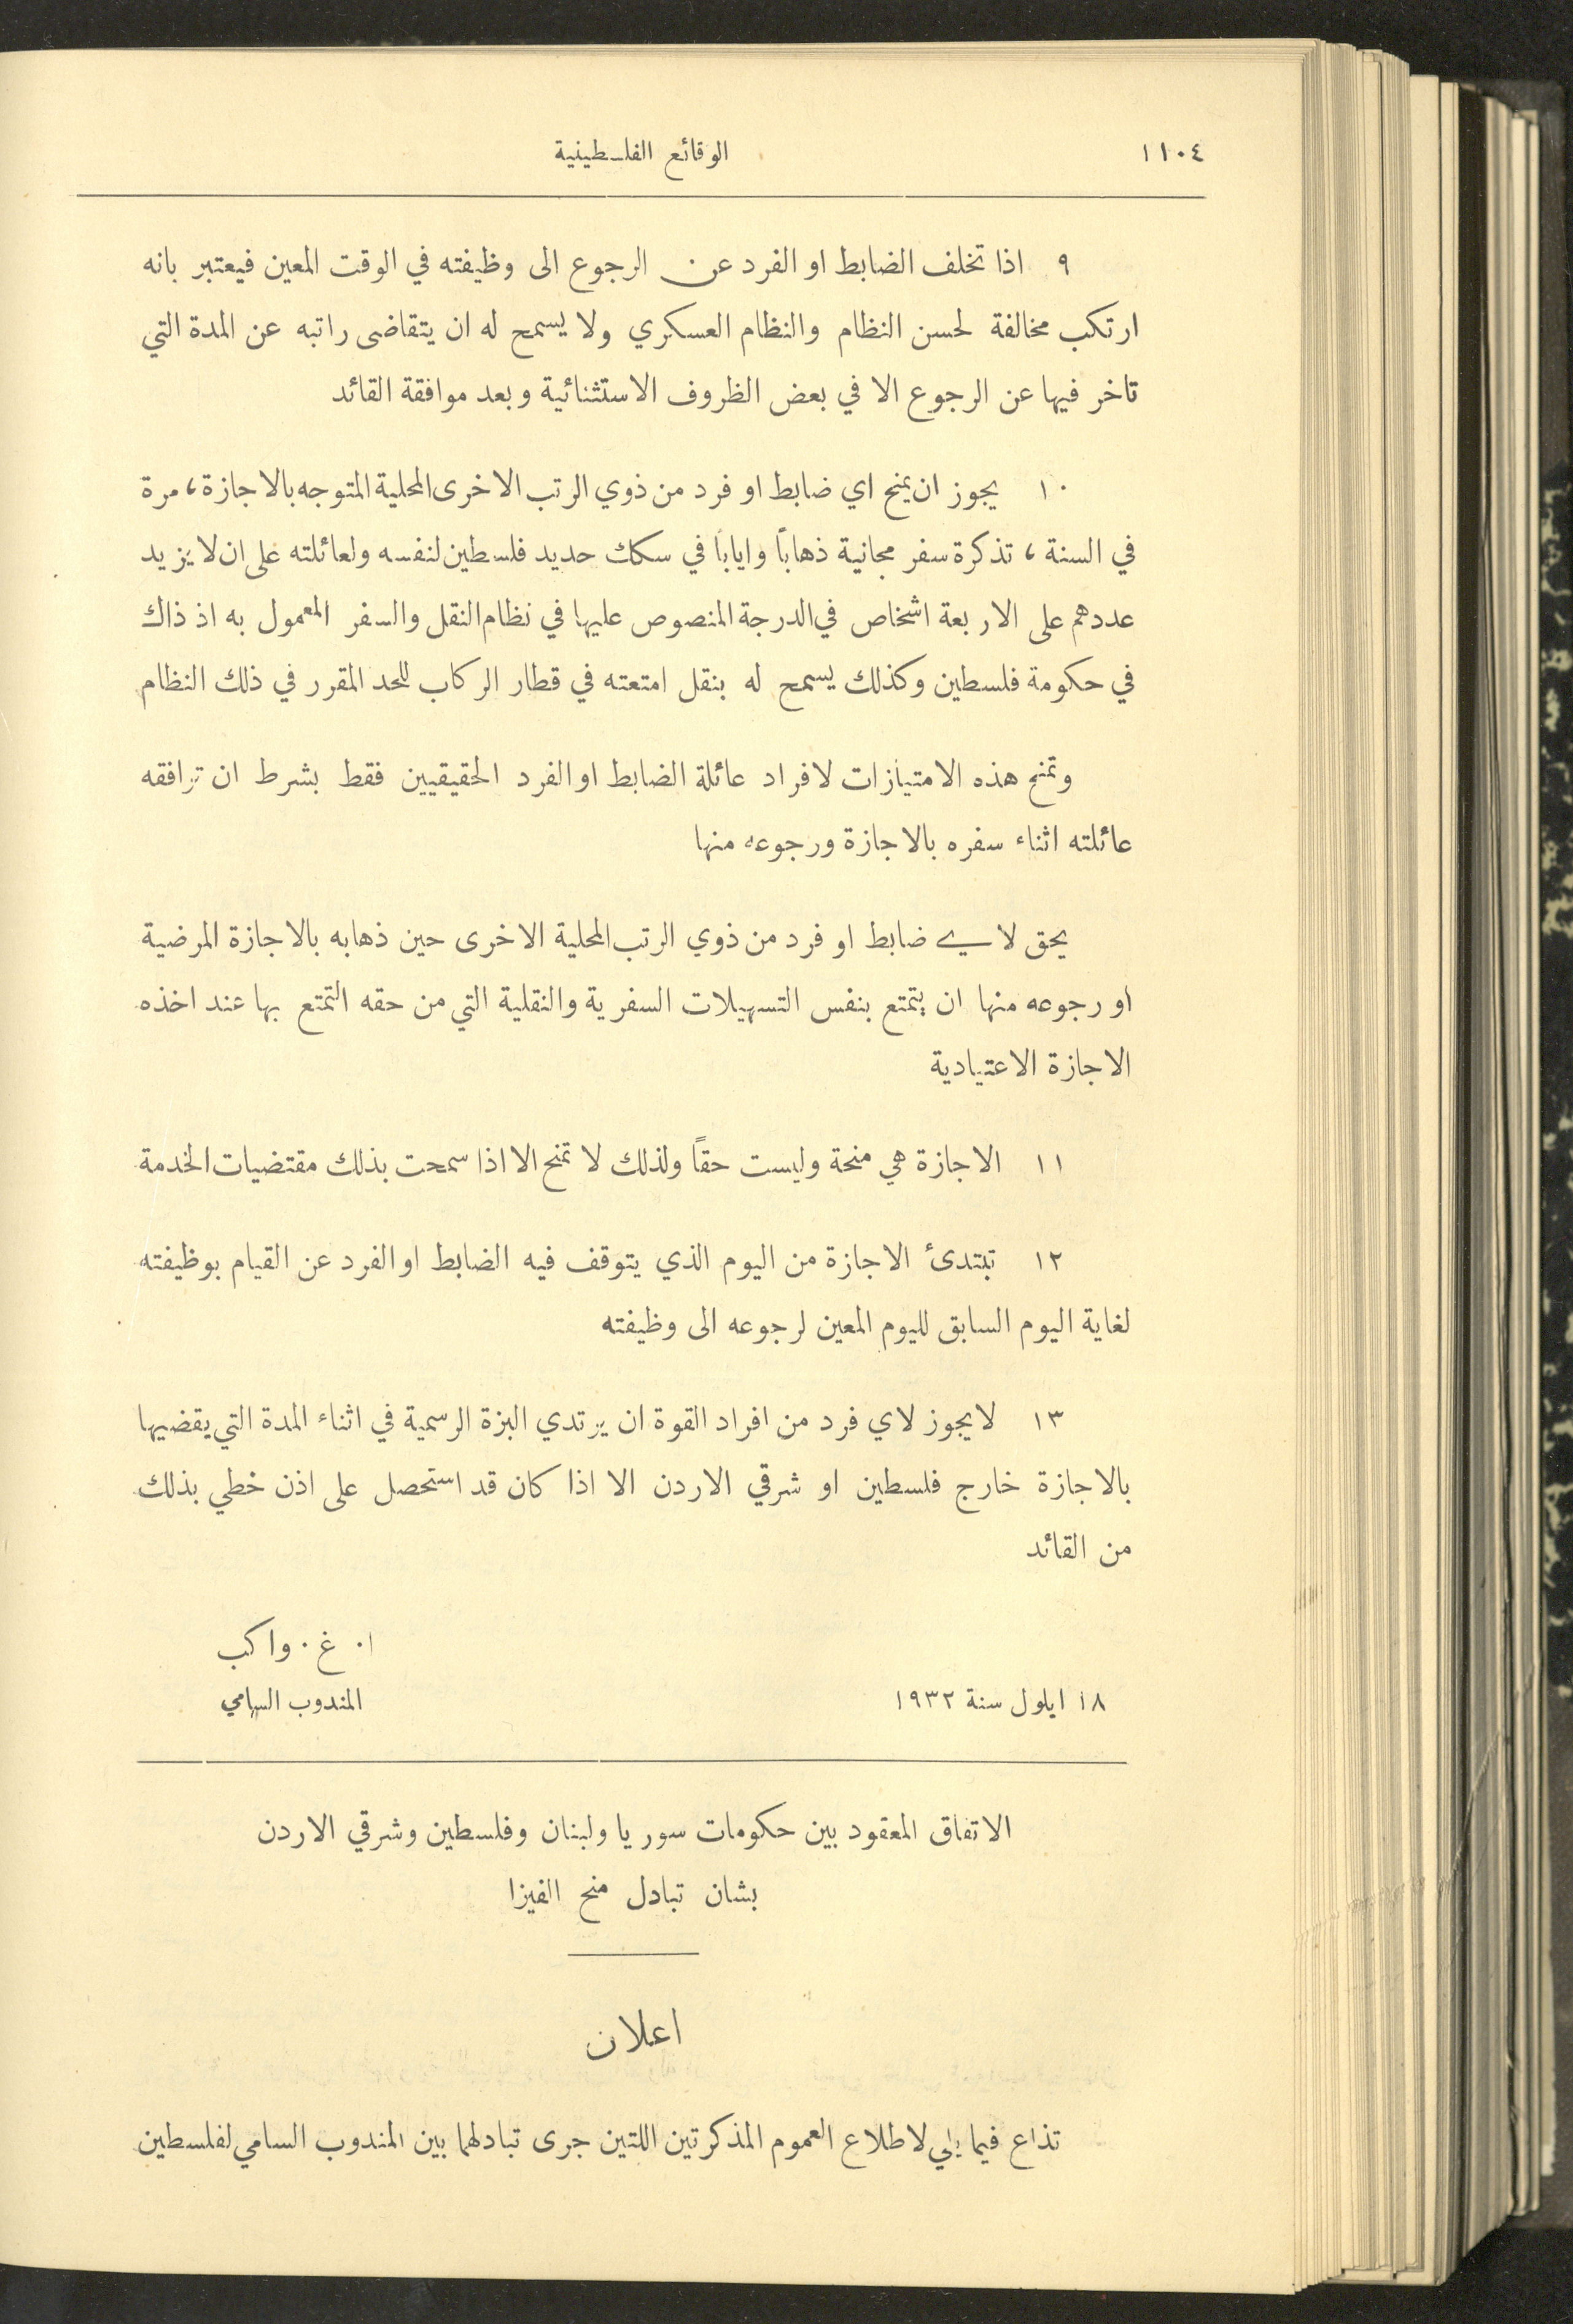 ١١٠٤ الوقائع الفلسطينية
٩ اذا تخلف الضابط او الفرد عن الرجوع الى وظيفته في الوقت المعين فيعتبر بانه
ارتكب مخالفة لحسن النظام والنظام العسكري ولا يسمح له ان يتقاضى راتبه عن المدة التي
تاخر فيها عن الرجوع الا في بعض الظروف الاستثنائية وبعد موافقة القائد
١٠ يجوز ان يمنح اي ضابط او فرد من ذوي الرتب الاخرى المحلية المتوجه بالاجازة، مرة
في السنة، تذكرة سفر مجانية ذهاباً واياباً في سكك حديد فلسطين لنفسه ولعائلته على ان لا يزيد
عددهم على الاربعة اشخاص في الدرجة المنصوص عليها في نظام النقل والسفر المعمول به اذ ذاك
في حكومة فلسطين وكذلك يسمح له بنقل امتعته في قطار الركاب للحد المقرر في ذلك النظام
وتمنح هذه الامتيازات لافراد عائلة الضابط او الفرد الحقيقيين فقط بشرط ان ترافقه
عائلته اثناء سفره بالاجازة ورجوعه منها
يحق لاي ضابط او فرد من ذوي الرتب المحلية الاخرى حين ذهابه بالاجازة المرضية
او رجوعه منها ان يتمتع بنفس التسهيلات السفرية والنقلية التي من حقه التمتع بها عند اخذه
الاجازة الاعتيادية
١١ الاجازة هي منحة وليست حقاً ولذلك لا تمنح الا اذا سمحت بذلك مقتضيات الخدمة
١٢ تبتدئ الاجازة من اليوم الذي يتوقف فيه الضابط او الفرد عن القيام بوظيفته
لغاية اليوم السابق لليوم المعين لرجوعه الى وظيفته
١٣ لا يجوز لاي فرد من افراد القوة ان يرتدي البزة الرسمية في اثناء المدة التي يقضيها
بالاجازة خارج فلسطين او شرقي الاردن الا اذا كان قد استحصل على اذن خطي بذلك
من القائد
ا. غ. واكب
١٨ ايلول سنة ١٩٣٢ المندوب السامي
الاتفاق المعقود بين حكومات سوريا ولبنان وفلسطين وشرقي الاردن
بشان تبادل منح الفيزا
اعلان
تذاع فيما يلي لاطلاع العموم المذكرتين اللتين جرى تبادلهما بين المندوب السامي لفلسطين